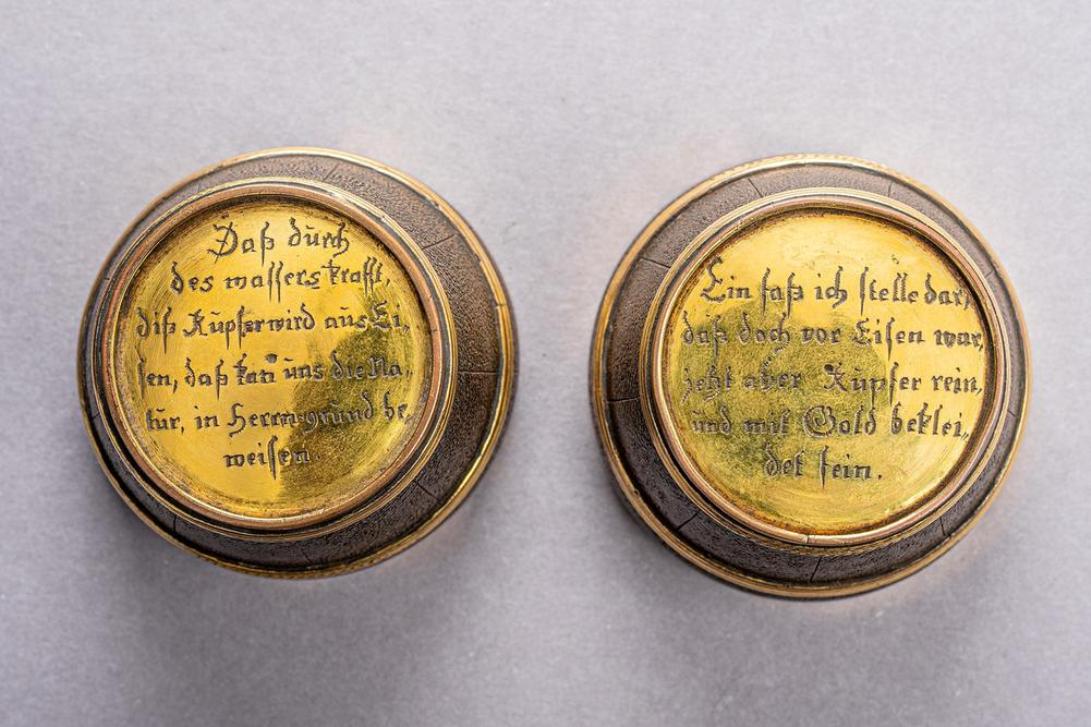 Daß dürch
des wassers krafft,
diß Kupfer wird aus Ei,
sen, daß kan uns die Na,
tür, in Herrn-grund be,
weisen.
Ein faß ich stelle dar,
daß doch vor Eisen war,
jetzt aber Kupfer rein,
und mit Gold beklei,
det fein.